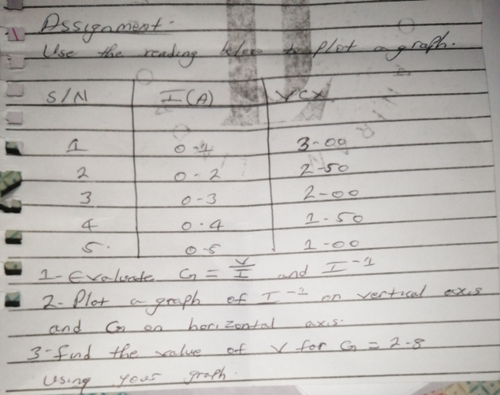 Assignment.
Use the reading below to plot a graph.
S/N I(A) V(V)
1 0.1 3.00
2 0.2 2.50
3 0.3 2.00
4 0.4 1.50
5. 0.5 1.00
1- Evaluate G = V/I and I⁻¹
2- Plot a graph of I⁻¹ on vertical axis
and G on horizontal axis.
3- find the value of V for G = 2.8
using your graph.